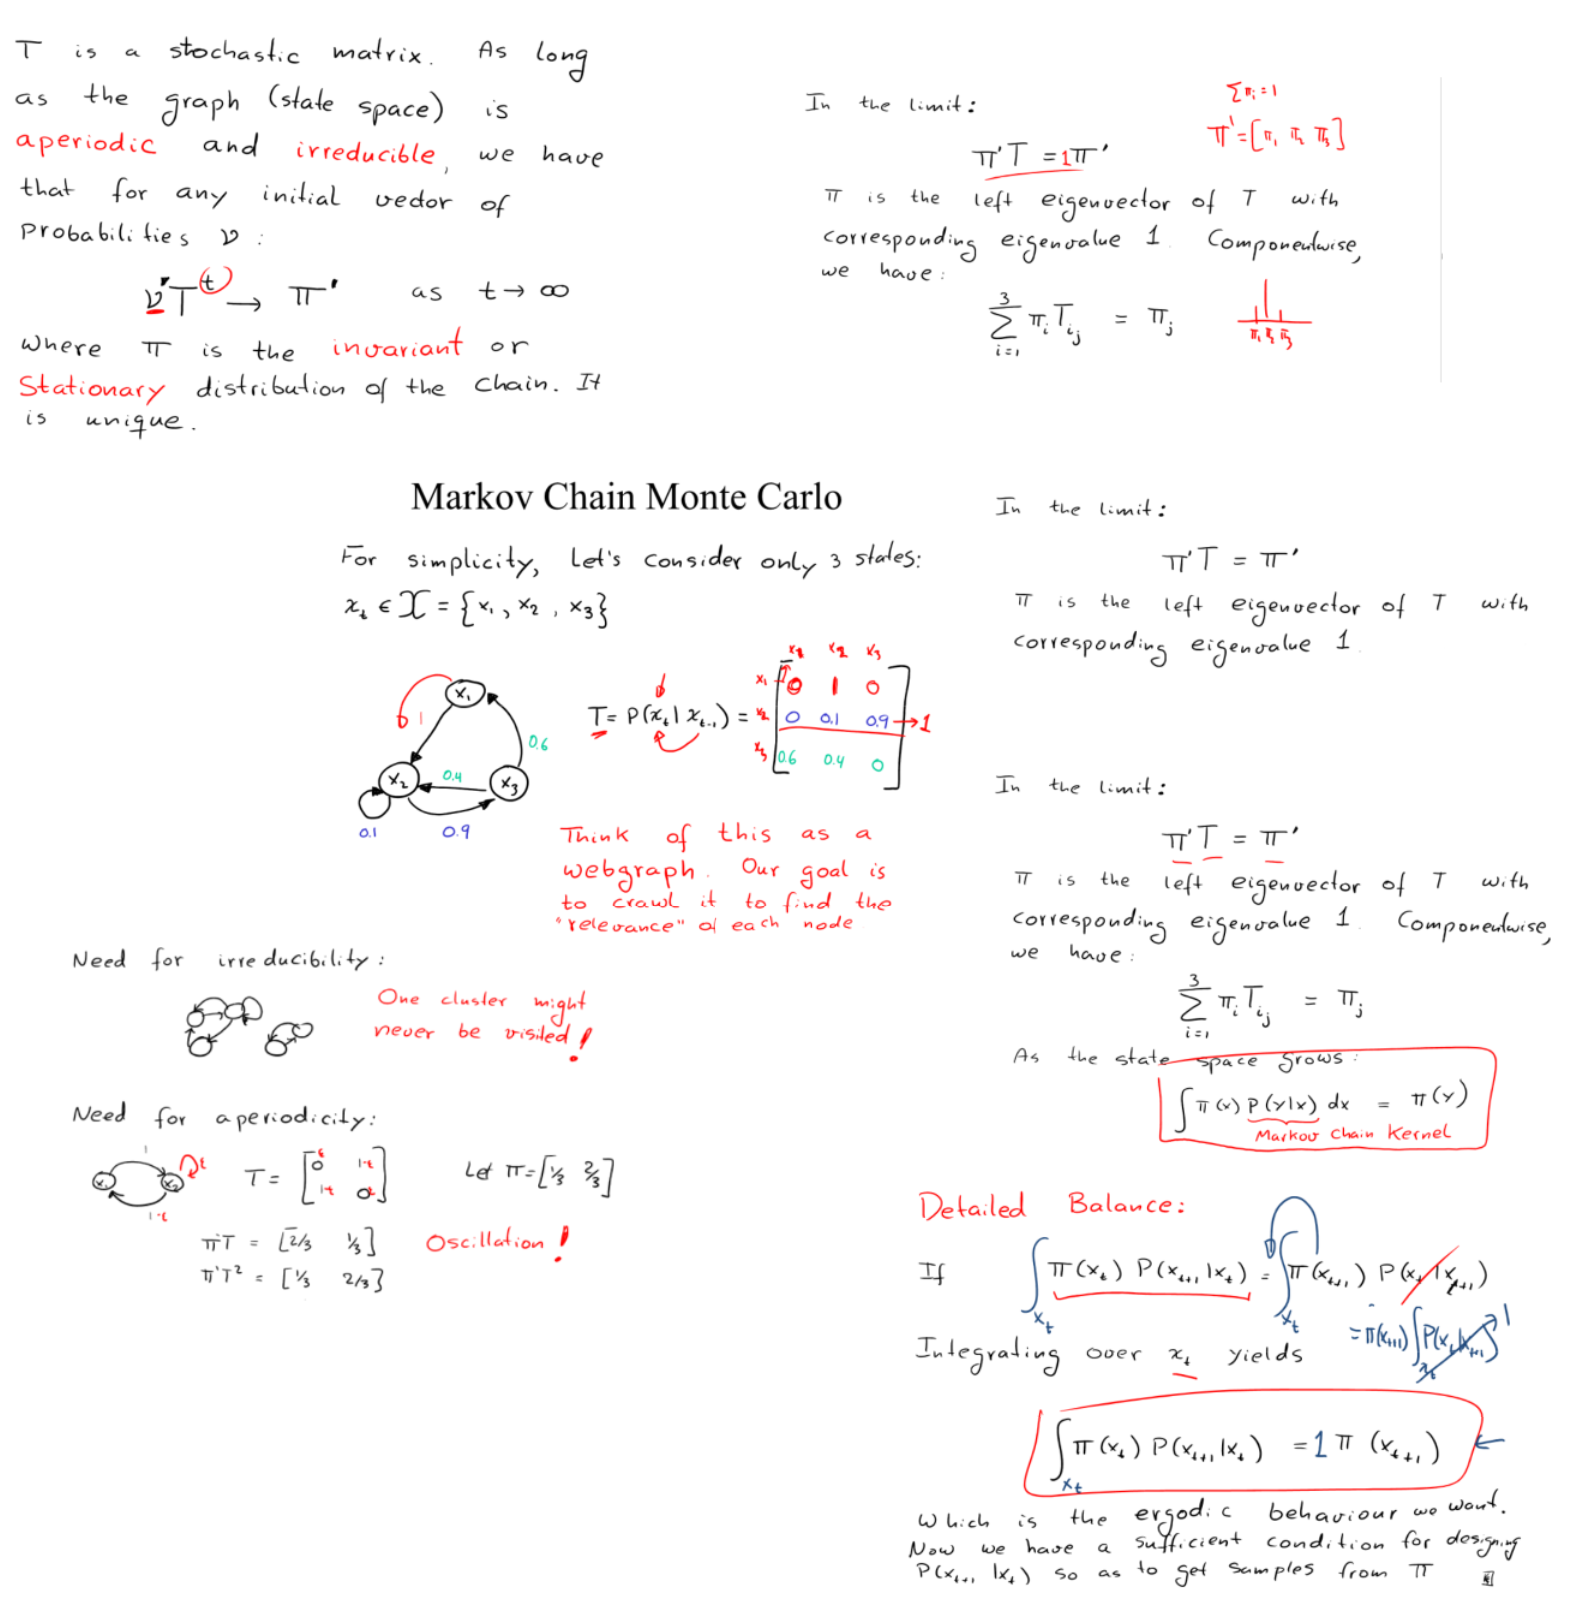 T is a stochastic matrix. As long
as the graph (state space) is
aperiodic and irreducible, we have
that for any initial vector of
Probabilities ν:
ν'T^t → π' as t → ∞
where π is the invariant or
Stationary distribution of the chain. It
is unique.
In the limit:
Σπi = 1
π' = [π1 π2 π3]
π'T = 1π'
π is the left eigenvector of T with
corresponding eigenvalue 1. Componentwise,
we have:
3
Σ πi Tij = πj
i=1
π1 π2 π3
Markov Chain Monte Carlo
For simplicity, Let's consider only 3 states:
xt ∈ X = {x1, x2, x3}
x1
1
0.6
x2
0.4
x3
0.1 0.9
T = P(xt|xt-1) =
x1 x2 x3
x1 0 1 0
x2 0 0.1 0.9 → 1
x3 0.6 0.4 0
Think of this as a
webgraph. Our goal is
to crawl it to find the
"relevance" of each node
Need for irreducibility:
One cluster might
never be visited!
Need for aperiodicity:
1
x1 x2 ε
1-ε
T = [0 ε 1-ε
1-ε 0 ε]
Let π = [1/3 2/3]
π'T = [2/3 1/3] Oscillation!
π'T² = [1/3 2/3]
In the limit:
π'T = π'
π is the left eigenvector of T with
corresponding eigenvalue 1.
In the limit:
π'T = π'
π is the left eigenvector of T with
corresponding eigenvalue 1. Componentwise,
we have:
3
Σ πi Tij = πj
i=1
As the state space grows:
∫ π(x) P(y|x) dx = π(y)
Markov Chain Kernel
Detailed Balance:
If ∫xt π(xt) P(xt+1|xt) = ∫xt π(xt+1) P(xt|xt+1)
= π(xt+1) ∫xt P(xt|xt+1) 1
Integrating over xt yields
∫xt π(xt) P(xt+1|xt) = 1 π(xt+1) ←
Which is the ergodic behaviour we want.
Now we have a sufficient condition for designing
P(xt+1|xt) so as to get samples from π